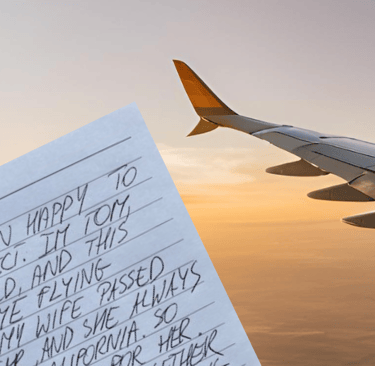 N HAPPY TO
CI. IM TOM,
D, AND THIS
ME FLYING
MY WIFE PASSED
AND SHE ALWAYS
CALIFORNIA. SO
FOR HER.